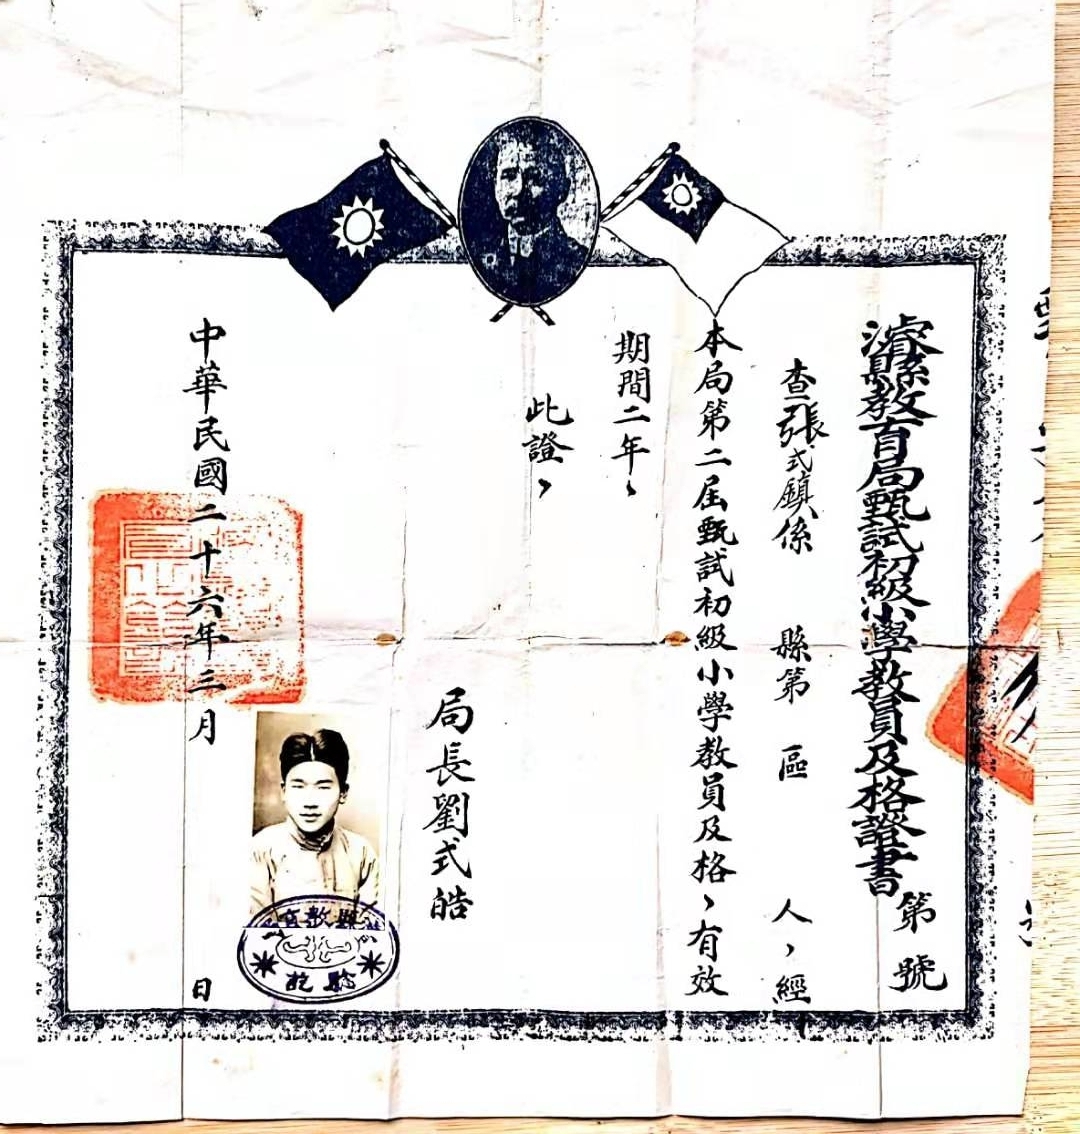 濬縣教育局甄試初級小學教員及格證書 第 號
查張式鎮係 縣第 區 人，經
本局第二屆甄試初級小學教員及格、有效
期間二年、
此證、
局長劉式皓
中華民國二十六年三月 日
縣教育
驗訖